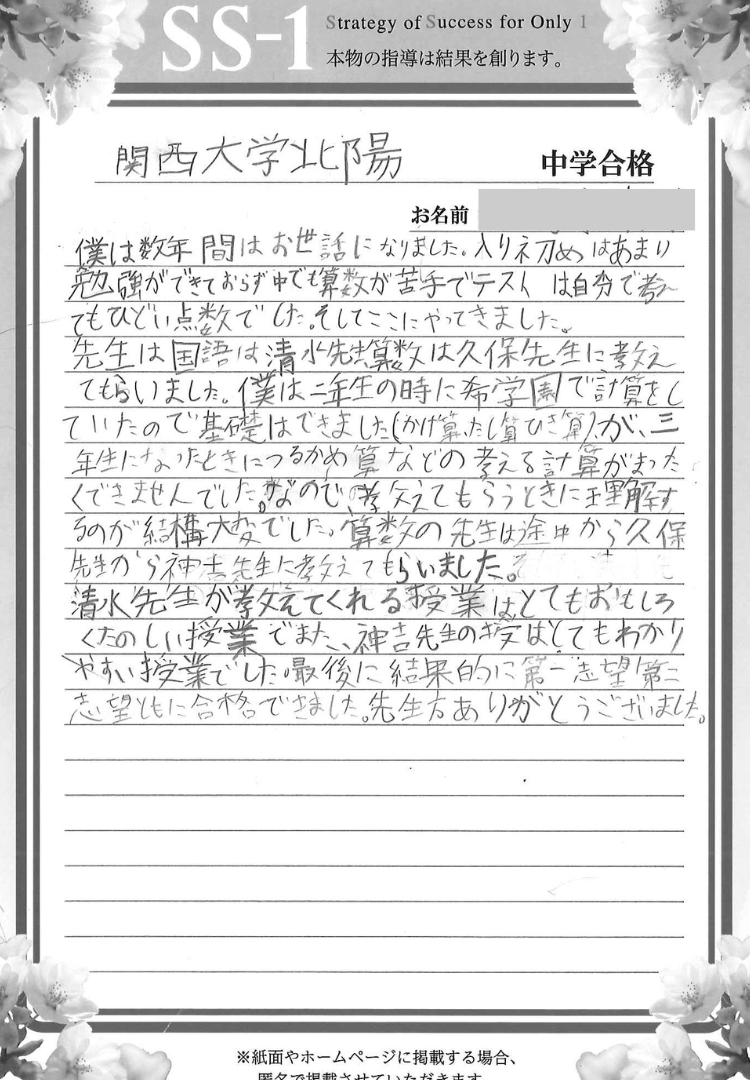 SS-1
Strategy of Success for Only 1
本物の指導は結果を創ります。
関西大学北陽 中学合格
お名前
僕は数年間はお世話になりました。入り初めはあまり
勉強ができておらず中でも算数が苦手でテストは自分で考え
てもひどい点数でした。そしてここにやってきました。
先生は国語は清水先生算数は久保先生に教え
てもらいました。僕は二年生の時に希学園で計算をし
ていたので基礎はできました(かけ算、たし算ひき算)が、三
年生になったときにつるかめ算などの考える計算がまった
くできませんでした。なので、教えてもらうときに理解す
るのが結構大変でした。算数の先生は途中から久保
先生から神吉先生に教えてもらいました。
清水先生が教えてくれる授業はとてもおもしろ
くたのしい授業でまた、神吉先生の授はとてもわかり
やすい授業でした。最後に結果的に第一志望第二
志望ともに合格できました。先生方ありがとうございました。
※紙面やホームページに掲載する場合、
匿名で掲載させていただきます